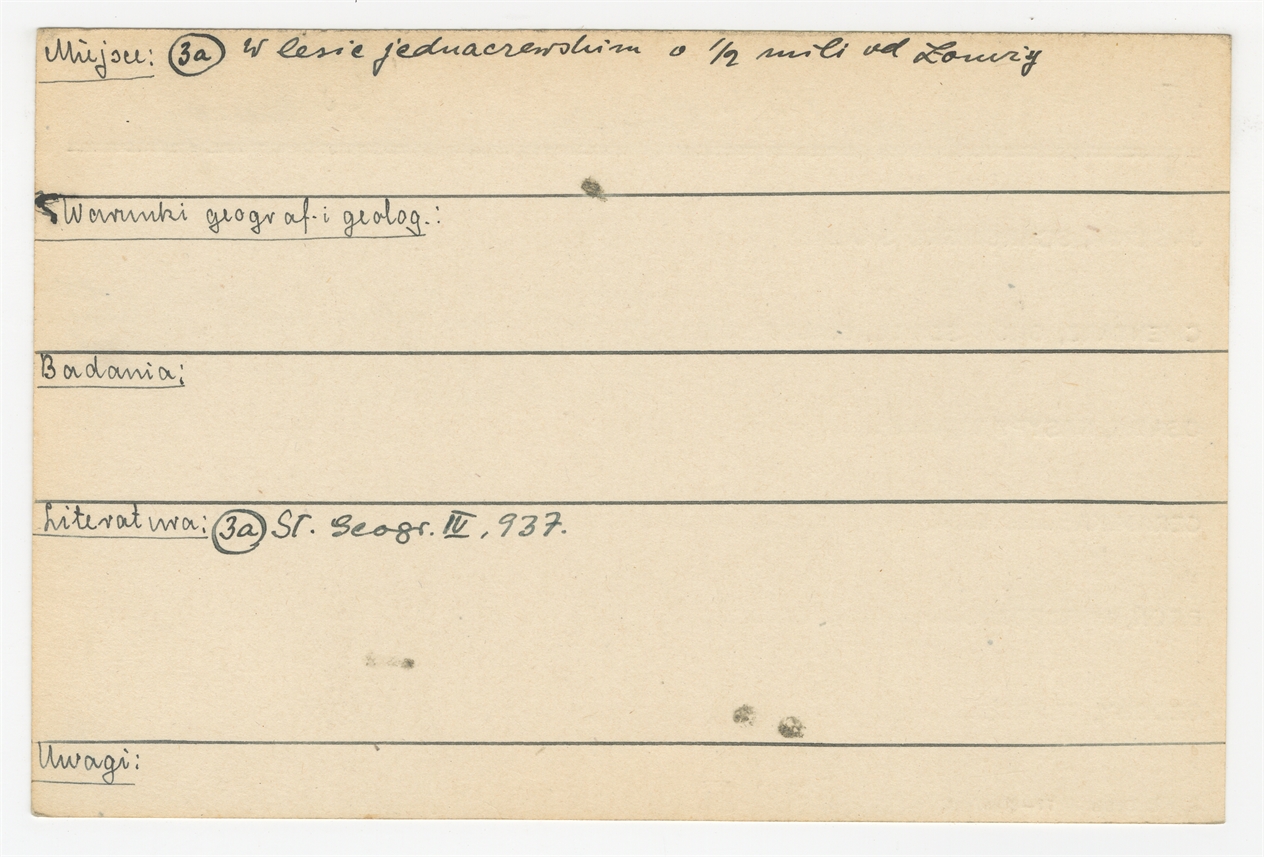 Miejsce: 3a W lesie jednaczewskim o 1/2 mili od Łomży
Warunki geograf. i geolog.:
Badania:
Literatura: 3a Sł. Geogr. IV, 937.
Uwagi: